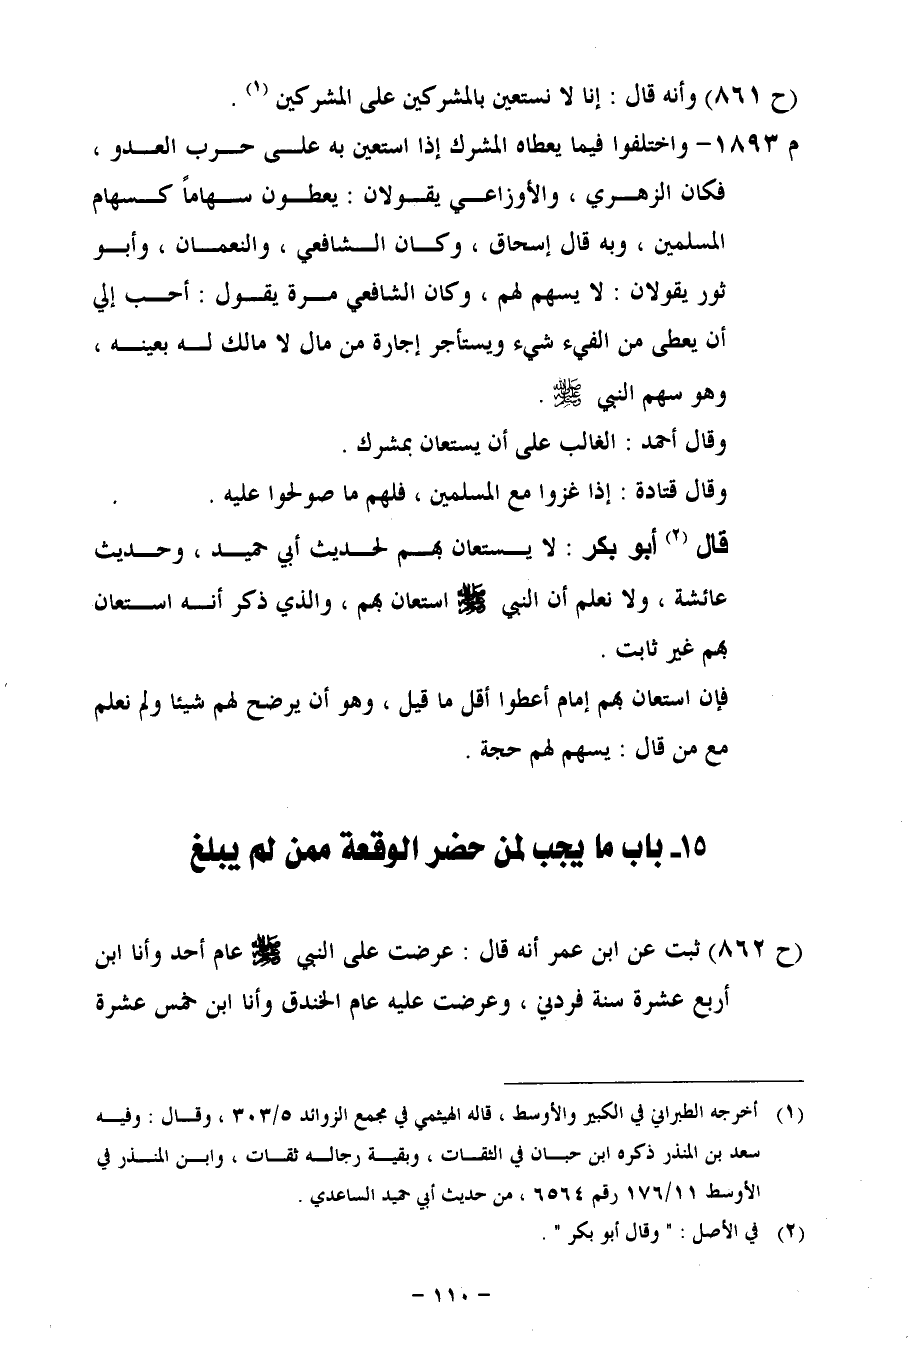 (ح ٨٦١) وأنه قال : إنا لا نستعين بالمشركين على المشركين (١) .
م ١٨٩٣- واختلفوا فيما يعطاه المشرك إذا استعين به علــى حــرب العــدو ،
فكان الزهــري ، والأوزاعــي يقــولان : يعطــون ســهاماً كــسهام
المسلمين ، وبه قال إسحاق ، وكــان الــشافعي ، والنعمــان ، وأبــو
ثور يقولان : لا يسهم لهم ، وكان الشافعي مــرة يقــول : أحــب إلي
أن يعطى من الفيء شيء ويستأجر إجارة من مال لا مالك لــه بعينــه ،
وهو سهم النبي ﷺ .
وقال أحمد : الغالب على أن يستعان بمشرك .
وقال قتادة : إذا غزوا مع المسلمين ، فلهم ما صولحوا عليه .
قال (٢) أبو بكر : لا يــستعان بهــم لحــديث أبي حميــد ، وحــديث
عائشة ، ولا نعلم أن النبي ﷺ استعان بهم ، والذي ذكر أنــه اســتعان
بهم غير ثابت .
فإن استعان بهم إمام أعطوا أقل ما قيل ، وهو أن يرضح لهم شيئا ولم نعلم
مع من قال : يسهم لهم حجة .
١٥ـ باب ما يجب لمن حضر الوقعة ممن لم يبلغ
(ح ٨٦٢) ثبت عن ابن عمر أنه قال : عرضت على النبي ﷺ عام أحد وأنا ابن
أربع عشرة سنة فردني ، وعرضت عليه عام الخندق وأنا ابن خمس عشرة
(١) أخرجه الطبراني في الكبير والأوسط ، قاله الهيثمي في مجمع الزوائد ٣٠٣/٥ ، وقــال : وفيــه
سعد بن المنذر ذكره ابن حبــان في الثقــات ، وبقيــة رجالــه ثقــات ، وابــن المنــذر في
الأوسط ١٧٦/١١ رقم ٦٥٦٤ ، من حديث أبي حميد الساعدي .
(٢) في الأصل : " وقال أبو بكر " .
- ١١٠ -